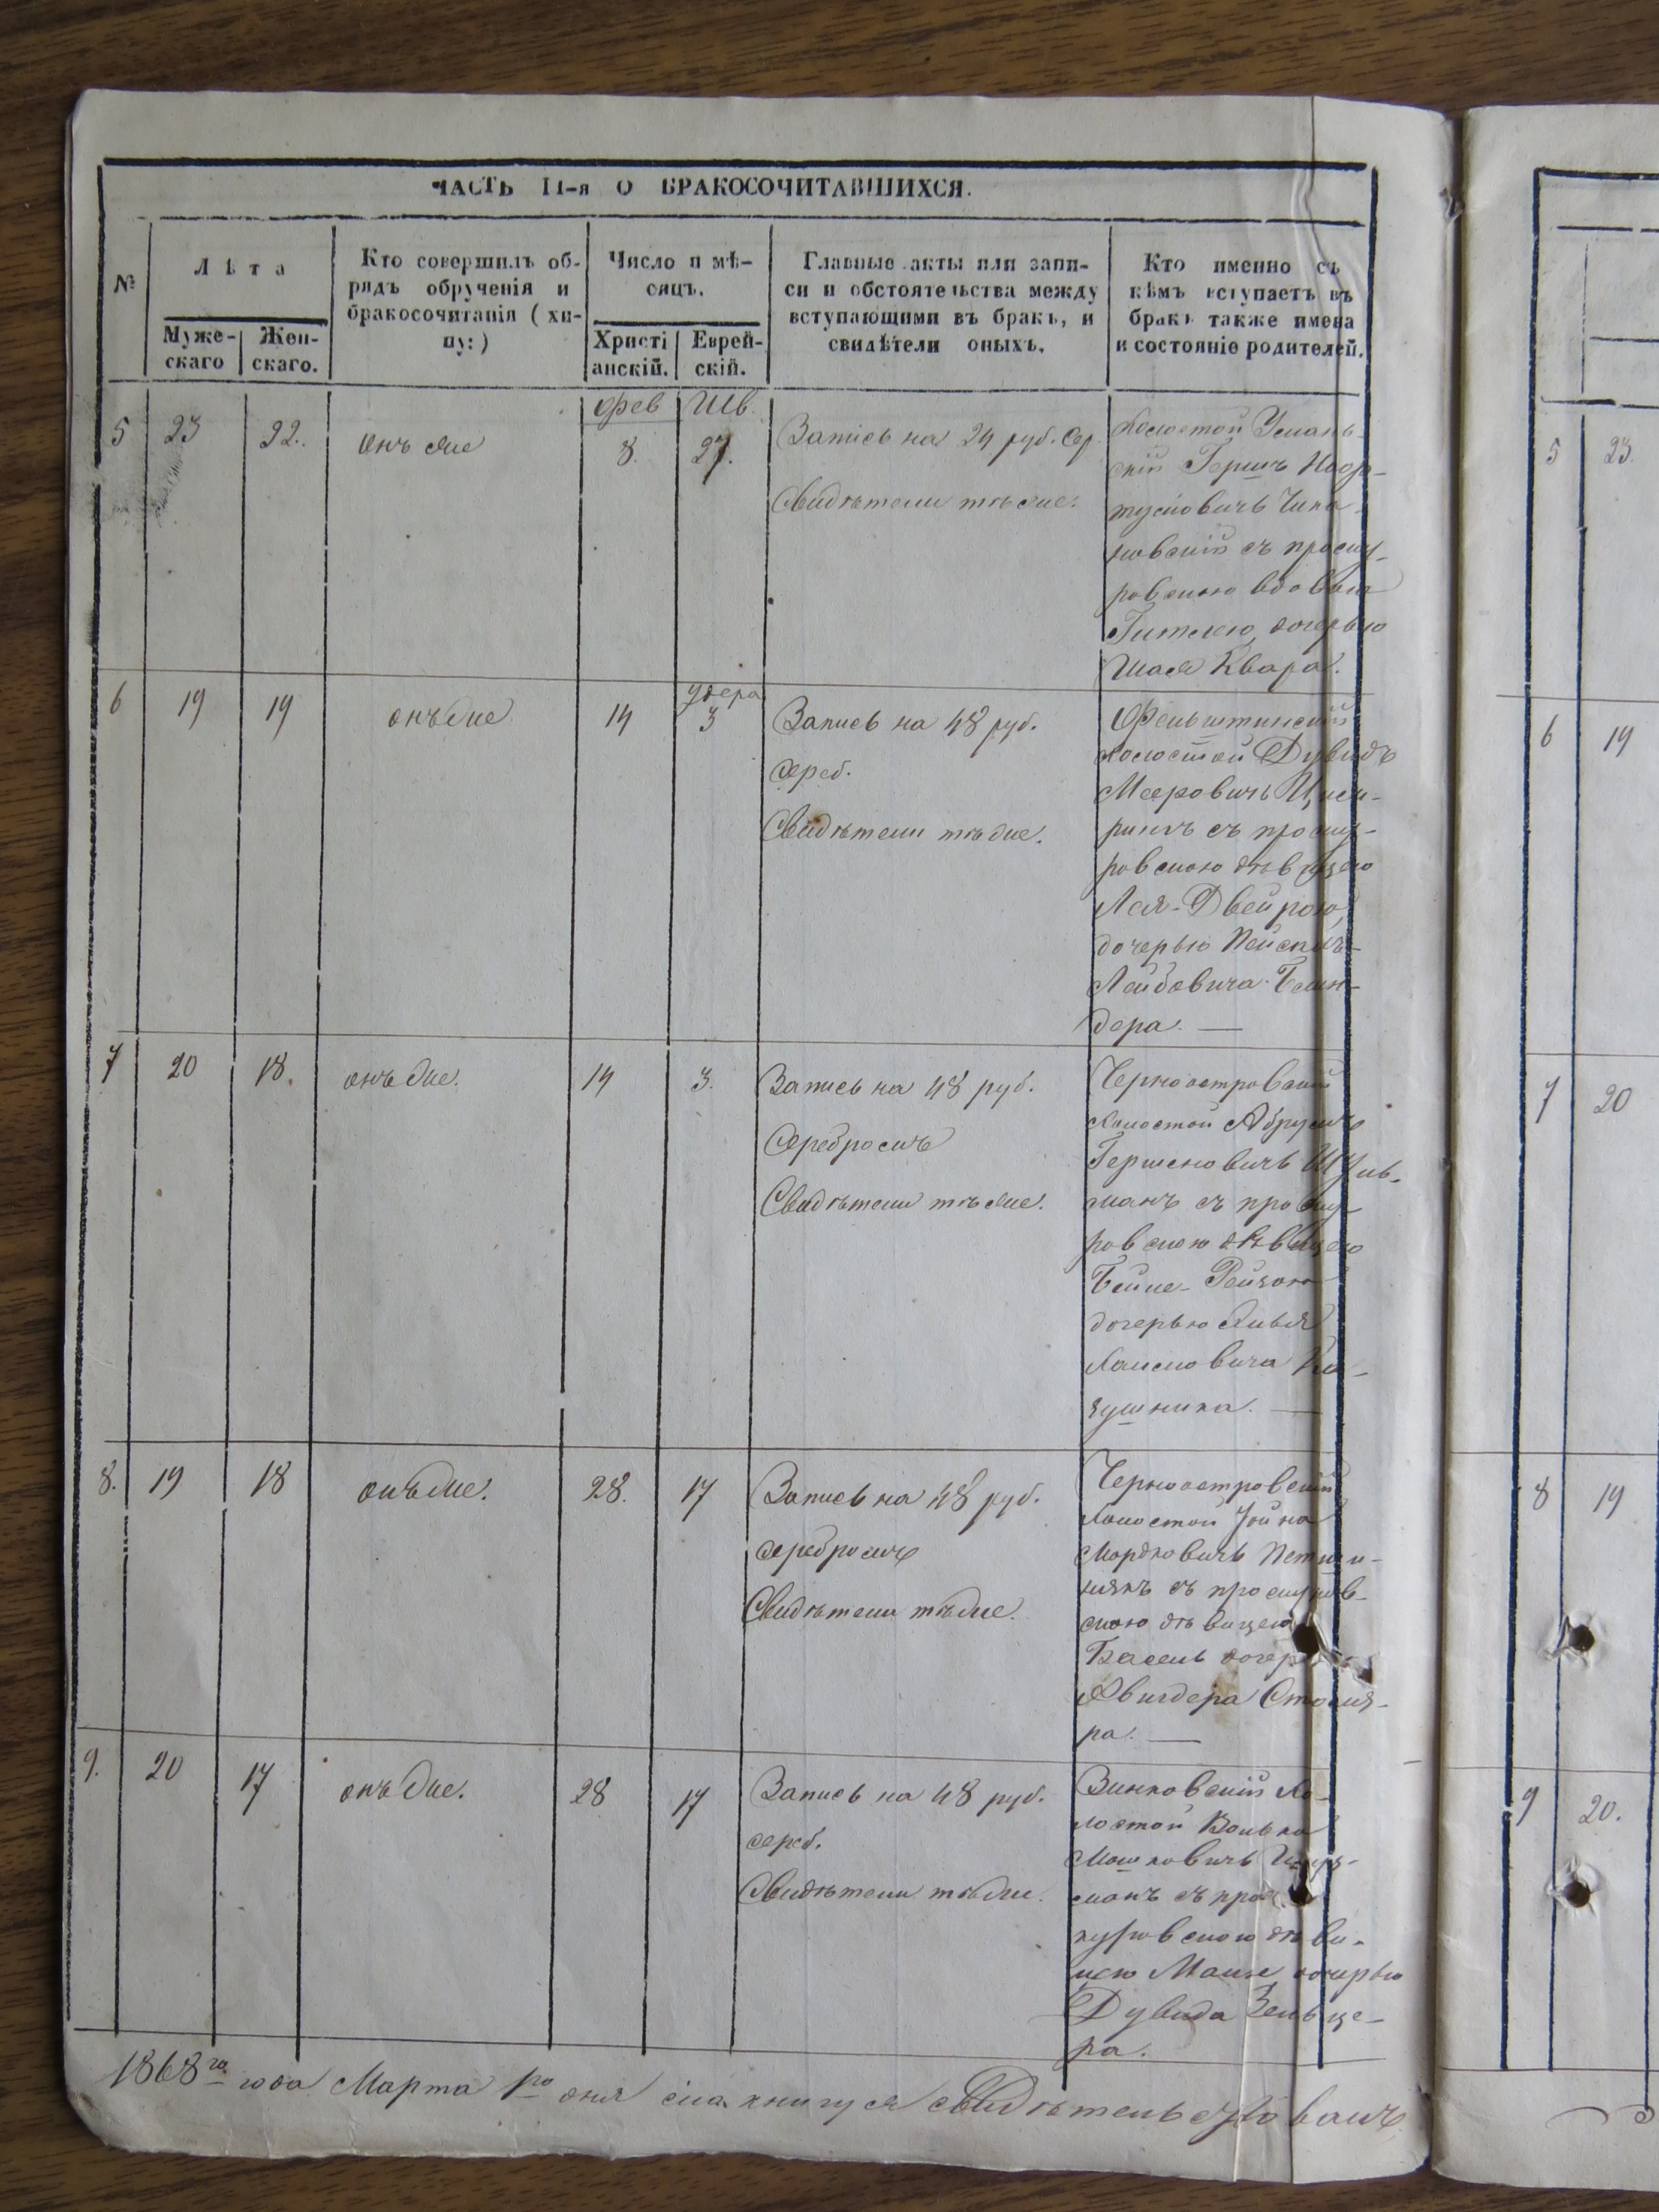 ЧАСТЬ II-я О БРАКОСОЧИТАВШИХСЯ.
№
Лѣта
Муже-
скаго
Жен-
скаго.
Кто совершилъ об-
рядъ обрученія и
бракосочитанія (хи-
пу:)
Число и мѣ-
сяцъ.
Христі
анскій.
Еврей-
скій.
Главные акты или запи-
си и обстоятельства между
вступающими въ бракъ, и
свидѣтели оныхъ.
Кто именно съ
кѣмъ вступаетъ въ
бракъ также имена
и состояніе родителей.
Фев Шв.
5 23 22. онъ же 8. 27.
Запись на 24 руб. сер.
Свидѣтели тѣ же.
Холостой Усмань-
скій Гершъ
с проску-
ровскою вдовою
Гитлею дочерью
Шаи Квара.
6 19 19 онъ же 14 Удера 3
Запись на 48 руб.
сереб.
Свидѣтели тѣ же.
Фельштинскій
холостой Дувидъ
Мееровичъ
съ проску-
ровскою дѣвицею
Лея-Двейрою,
дочерью
Лейбовича
дера. —
7 20 18. онъ же. 14 3.
Запись на 48 руб.
серебромъ
Свидѣтели тѣ же.
Черноостровскій
холостой Абрумъ
Гершковичъ Шуль-
манъ съ проску-
ровскою дѣвицею
Бейле-Рейзою
дочерью
Хаимовича Ко-
жушника. —
8. 19 18 онъ же. 28. 17
Запись на 48 руб.
серебромъ
Свидѣтели тѣ же.
Черноостровскій
холостой Іойна
Мордковичъ
съ проскуров-
скою дѣвицею
Басею дочерью
Авигдера Столя-
ра. —
9. 20 17 онъ же. 28 17
Запись на 48 руб.
сереб.
Свидѣтели тѣ же.
Зинковскій хо-
лостой Волько
Мошковичъ
манъ съ прос-
куровскою дѣви-
цею дочерью
Дувида Зельце-
ра.
1868го года Марта 1го дня сія книга свидѣтельствована
5 23.
6 19
7 20
8 19
9 20.